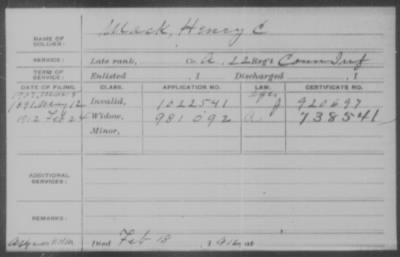 NAME OF SOLDIER: Mack, Henry C
SERVICE: Late rank, Co. A, 22 Reg't Conn Inf
TERM OF SERVICE: Enlisted , 1 Discharged , 1
DATE OF FILING. CLASS. APPLICATION NO. LAW. CERTIFICATE NO.
1891 May 12 Invalid, 1022541 J 920697
1912 Feb 24 Widow, 981092 738541
Minor,
ADDITIONAL SERVICES:
REMARKS:
Died Feb 18, 1912, at